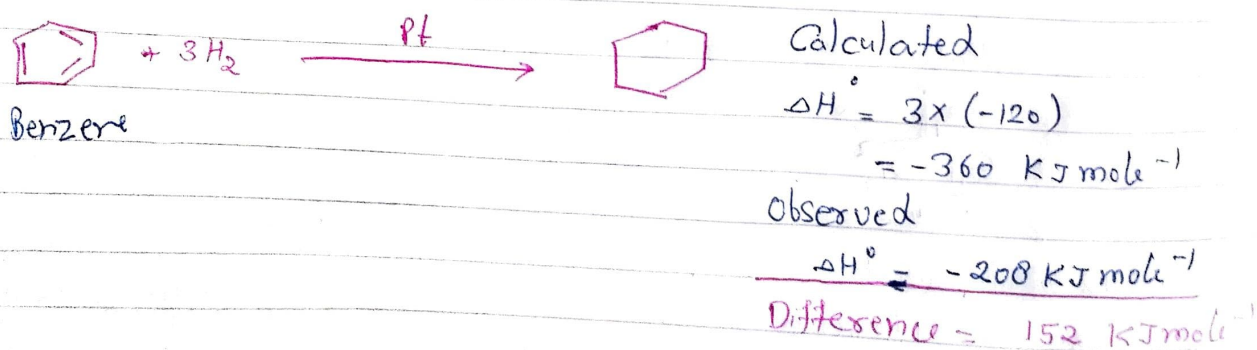 + 3 H₂ Pt
Benzene
Calculated
ΔH° = 3 x (-120)
= -360 KJ mole⁻¹
Observed
ΔH° = -208 KJ mole⁻¹
Difference = 152 KJ mole⁻¹